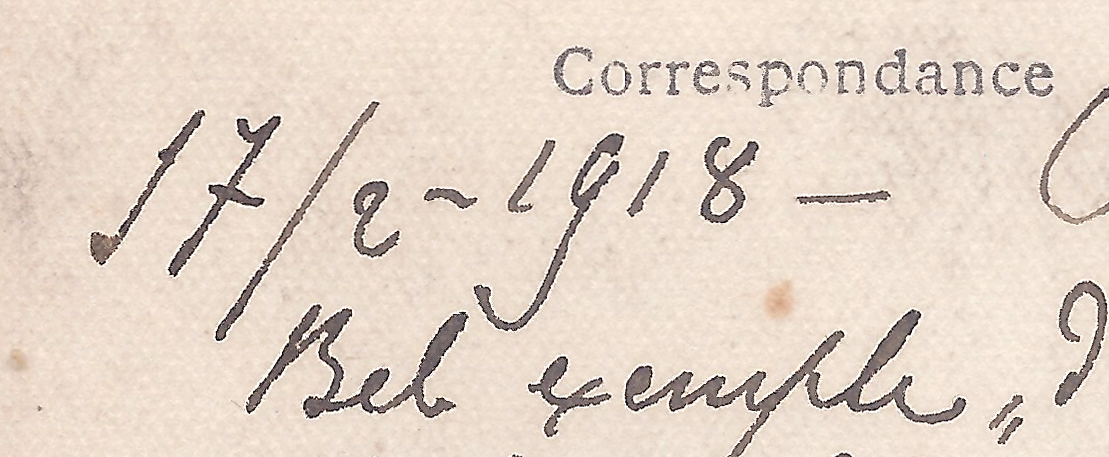 Correspondance
17/2-1918 —
Bel exemple „